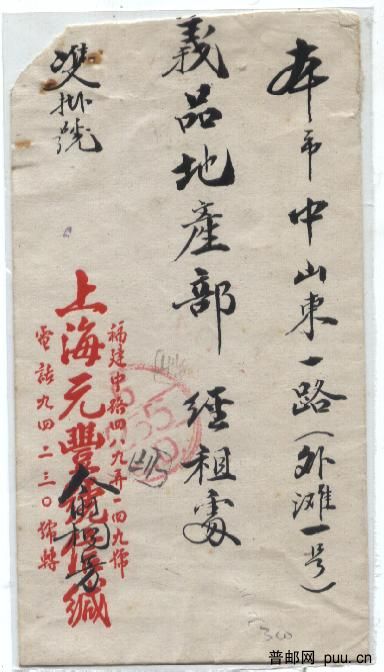 本市中山東一路(外灘一号)
義品地產部 經租處
雙掛號
福建中路四八九弄一四九號
上海元豐
緘
電話九四二三〇號轉
普邮网 puu.cn